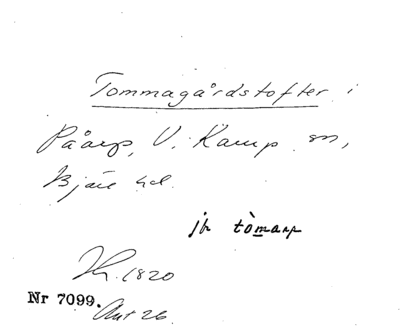 Tommagårdstofter i
Påarp, V. Karup sn,
Bjäre hd.
jfr tòmarp
Lk. 1820
Nr 7099.
Akt 26